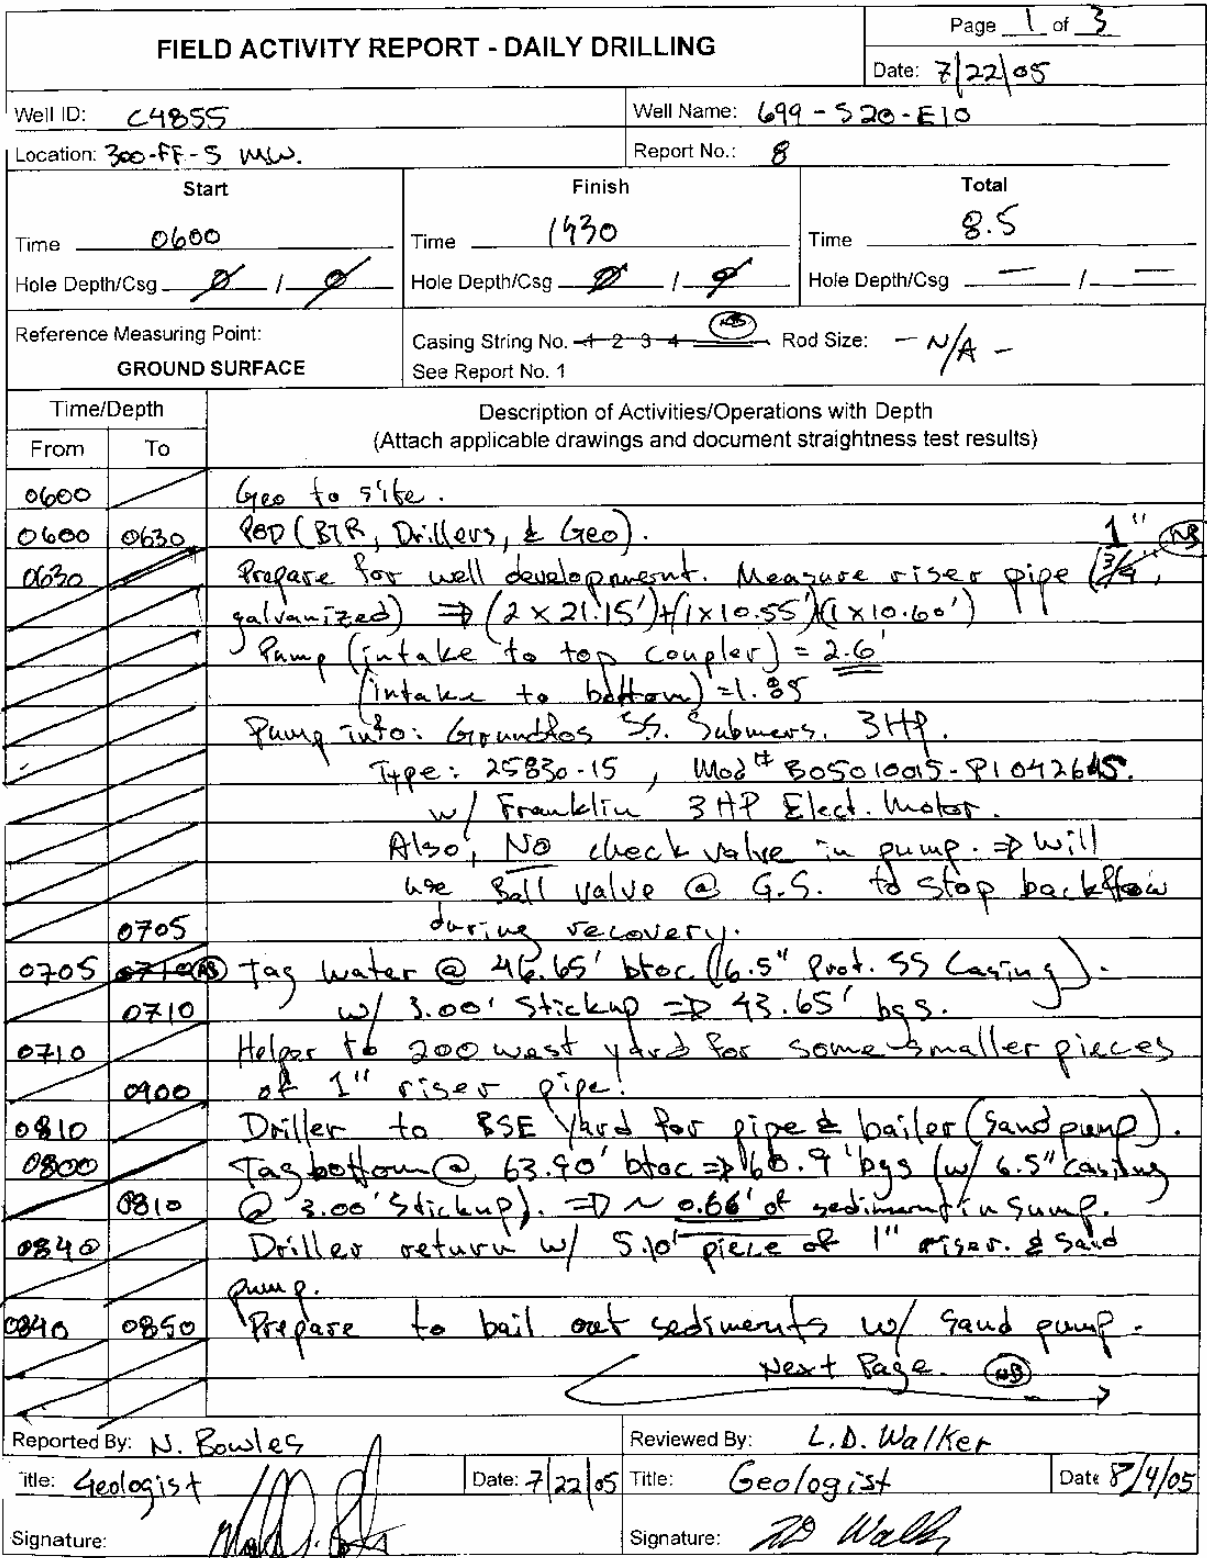 FIELD ACTIVITY REPORT - DAILY DRILLING
Page 1 of 3
Date: 7/22/05
Well ID: C4855
Well Name: 699-S20-E10
Location: 300-FF-5 MW.
Report No.: 8
Start
Finish
Total
Time 0600
Time 1430
Time 8.5
Hole Depth/Csg 0 / 0
Hole Depth/Csg 0 / 0
Hole Depth/Csg — / —
Reference Measuring Point:
GROUND SURFACE
Casing String No. 1 2 3 4 NB Rod Size: - N/A -
See Report No. 1
Time/Depth
From To
Description of Activities/Operations with Depth
(Attach applicable drawings and document straightness test results)
0600 Geo to site.
0600 0630 POD (BTR, Drillers, & Geo).
1" NB
0630 Prepare for well development. Measure riser pipe (3/4",
galvanized) ⇒ (2 x 21.15')+(1x10.55')(1x10.60')
Pump (intake to top coupler) = 2.6'
(intake to bottom) =1.85
Pump info: Grundfos SS. Submers. 3HP.
Type: 25S30-15, Mod# B05010015-P1042645.
w/ Franklin 3HP Elect. Motor.
Also, NO check valve in pump. ⇒ Will
use Ball valve @ G.S. to stop backflow
0705 during recovery.
0705 0710 NB Tag water @ 46.65' btoc (6.5" Prot. SS Casing).
0710 w/ 3.00' Stickup ⇒ 43.65' bgs.
0710 Helper to 200 west yard for some smaller pieces
0900 of 1" riser pipe.
0810 Driller to BSE Yard for pipe & bailer (Sand pump).
0800 Tag bottom @ 63.90' btoc ⇒ 60.9' bgs (w/ 6.5" casing
0810 @ 3.00' Stickup). ⇒ ~ 0.66' of sediment in sump.
0840 Driller return w/ 5.10' piece of 1" riser. & Sand
pump.
0840 0850 Prepare to bail out sediments w/ Sand pump.
Next Page. NB
Reported By: N. Bowles
Reviewed By: L.D. Walker
Title: Geologist
Date: 7/22/05
Title: Geologist
Date 8/4/05
Signature:
Signature: LD Walker